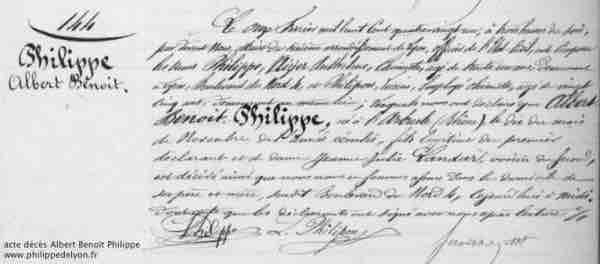 144
Philippe
Albert Benoît.
Le onze Février mil huit cent quatre vingt un, à trois heures du soir,
par devant Nous, Maire du sixième arrondissement de Lyon, officier de l'Etat Civil, ont comparu
les sieurs Philippe, Nizier Anthelme, Chimiste, âgé de trente un ans, Demeurant
à Lyon, Boulevard du Nord 4, et Philipon, Louis, Employé chimiste, âgé de vingt
cinq ans, lesquels nous ont déclaré que Albert
Benoît Philippe, né à l'Arbresle (Rhône), le dix du mois
de Novembre de l'année dernière, fils légitime du premier
déclarant et de dame Jeanne Julie Landar,
est décédé ainsi que nous nous en sommes assuré Dans le domicile de
ses père et mère, susdit Boulevard du Nord 4, aujourd'hui à midi.
que les déclarants ont signé avec nous après lecture.
Philippe L. Philipon
acte décès Albert Benoît Philippe
www.philippedelyon.fr